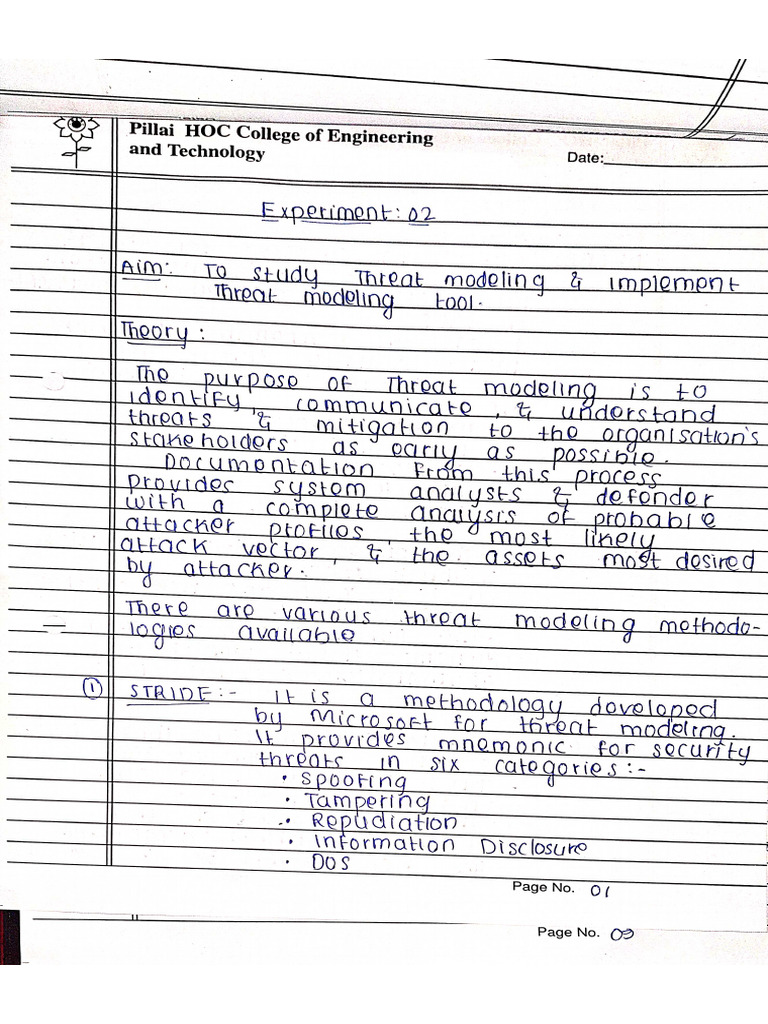 Pillai HOC College of Engineering
and Technology
Date:
Experiment: 02
Aim: To study Threat modeling & implement
Threat modeling tool.
Theory:
The purpose of Threat modeling is to
identify, communicate, & understand
threats & mitigation to the organisation's
stakeholders as early as possible.
Documentation from this process
provides system analysts & defender
with a complete analysis of probable
attacker profiles, the most likely
attack vector, & the assets most desired
by attacker.
There are various threat modeling methodo-
logies available
① STRIDE:- It is a methodology developed
by Microsoft for threat modeling.
It provides mnemonic for security
threats in six categories:-
• Spoofing
• Tampering
• Repudiation
• Information Disclosure
• DOS
Page No. 01
Page No. 03